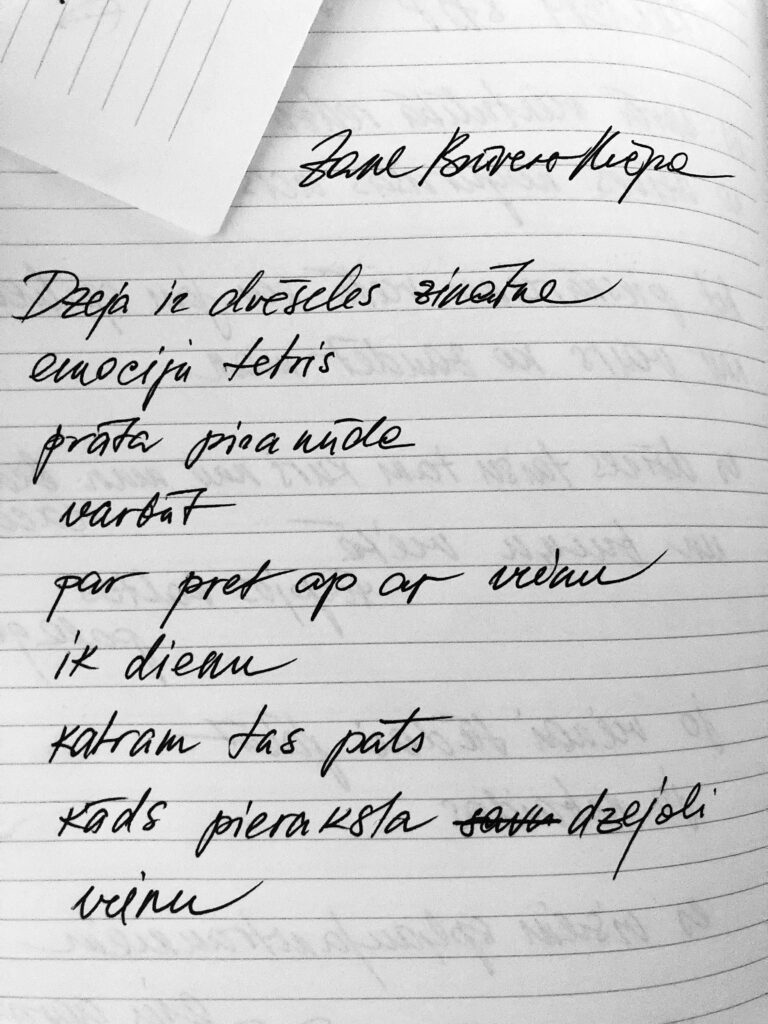 Zane Brūvere-Kvēpa
Dzeja ir dvēseles zinātne
emociju tetris
prāta piramīda
varbūt
par pret ap ar vienu
ik dienu
katram tas pats
kāds pieraksta savu dzejoli
vienu